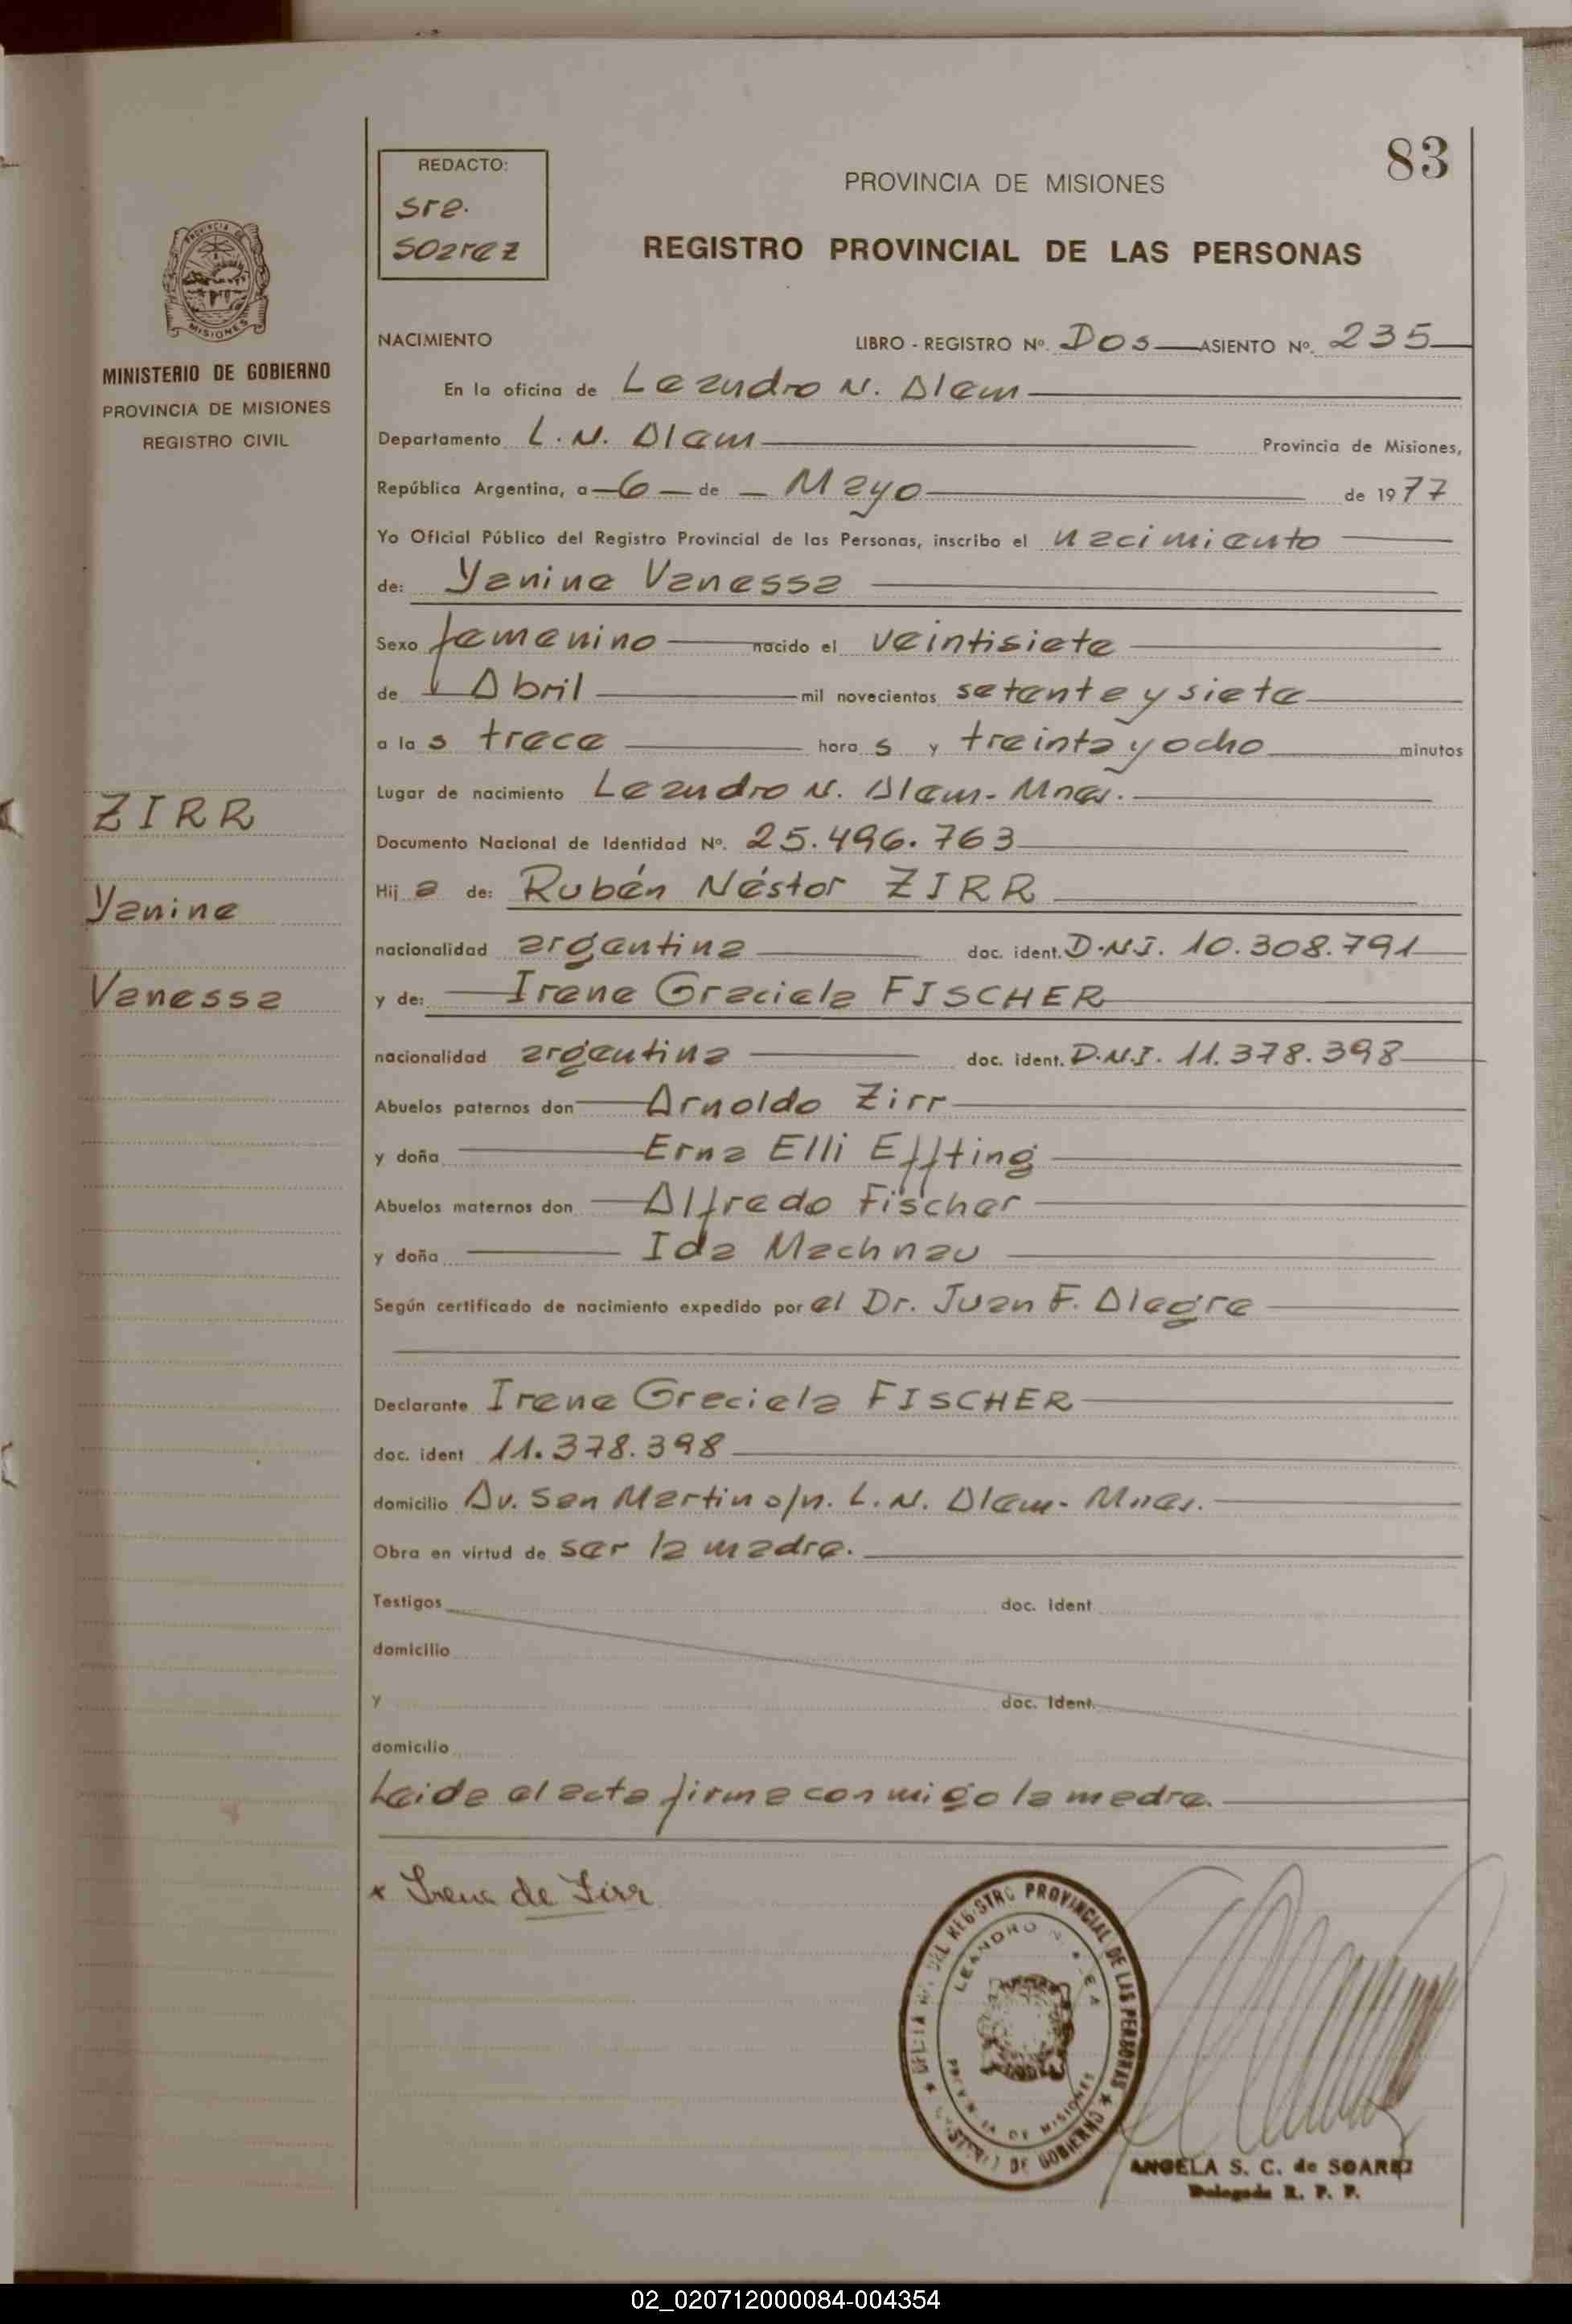 83
REDACTO:
sra.
Soarez
PROVINCIA DE MISIONES
REGISTRO PROVINCIAL DE LAS PERSONAS
PROVINCIA DE
MISIONES
MINISTERIO DE GOBIERNO
PROVINCIA DE MISIONES
REGISTRO CIVIL
NACIMIENTO LIBRO - REGISTRO Nº. Dos ASIENTO Nº. 235
En la oficina de Leandro N. Alem
Departamento L. N. Alem Provincia de Misiones,
República Argentina, a 6 de Mayo de 1977
Yo Oficial Público del Registro Provincial de las Personas, inscribo el nacimiento
de: Yanina Vanessa
Sexo femenino nacido el veintisiete
de Abril mil novecientos setenta y siete
a las trece horas y treinta y ocho minutos
Lugar de nacimiento Leandro N. Alem- Mnes.
Documento Nacional de Identidad Nº. 25.496.763
Hija de: Rubén Néstor ZIRR
nacionalidad argentina doc. ident. D.N.I. 10.308.791
y de: Irene Graciela FISCHER
nacionalidad argentina doc. ident. D.N.I. 11.378.398
Abuelos paternos don Arnoldo Zirr
y doña Erna Elli Effting
Abuelos maternos don Alfredo Fischer
y doña Ida Machnau
Según certificado de nacimiento expedido por el Dr. Juan F. Alegre
Declarante Irene Graciela FISCHER
doc. ident 11.378.398
domicilio Av. San Martin s/n. L. N. Alem- Mnes.
Obra en virtud de ser la madre.
Testigos doc. ident
domicilio
y doc. ident.
domicilio
Leida el acta firma conmigo la madre.
ZIRR
Yanina
Vanessa
x Irene de Zirr
DEL REGISTRO PROVINCIAL DE LAS PERSONAS
LEANDRO N. ALEM
PROVINCIA DE MISIONES
MINISTERIO DE GOBIERNO
ANGELA S. C. de SOAREZ
Delegada R. P. P.
02_020712000084-004354